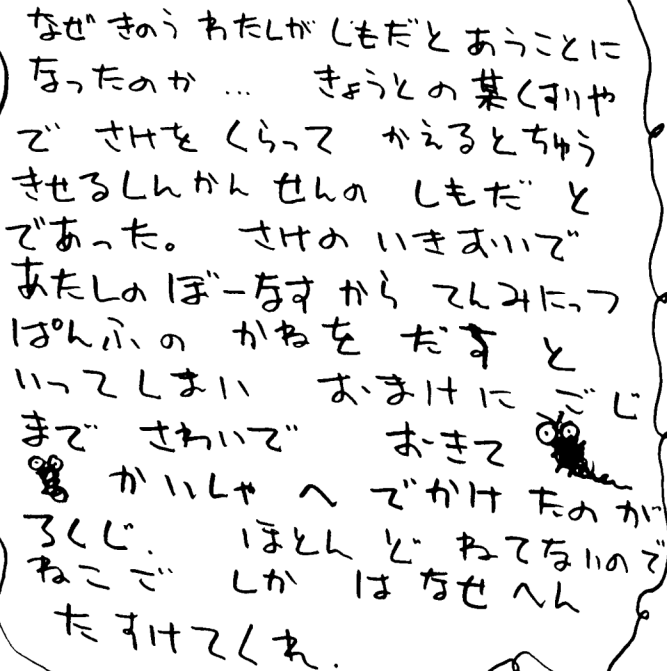 なぜ きのう わたしが じもだと あうことに
なったのか … きょうとの 某くすりや
で さけを くらって かえるとちゅう
きせるしんかんせんの しもだと
であった。 さけの いきおいで
あたしの ぼーなすから てんみにっつ
ぱんふの かねを だすと
いってしまい おまけに ごじ
まで さわいで おきて
かいしゃへ でかけたのが
ろくじ. ほとんど ねてないので
ねこご しか はなせへん
たすけてくれ.